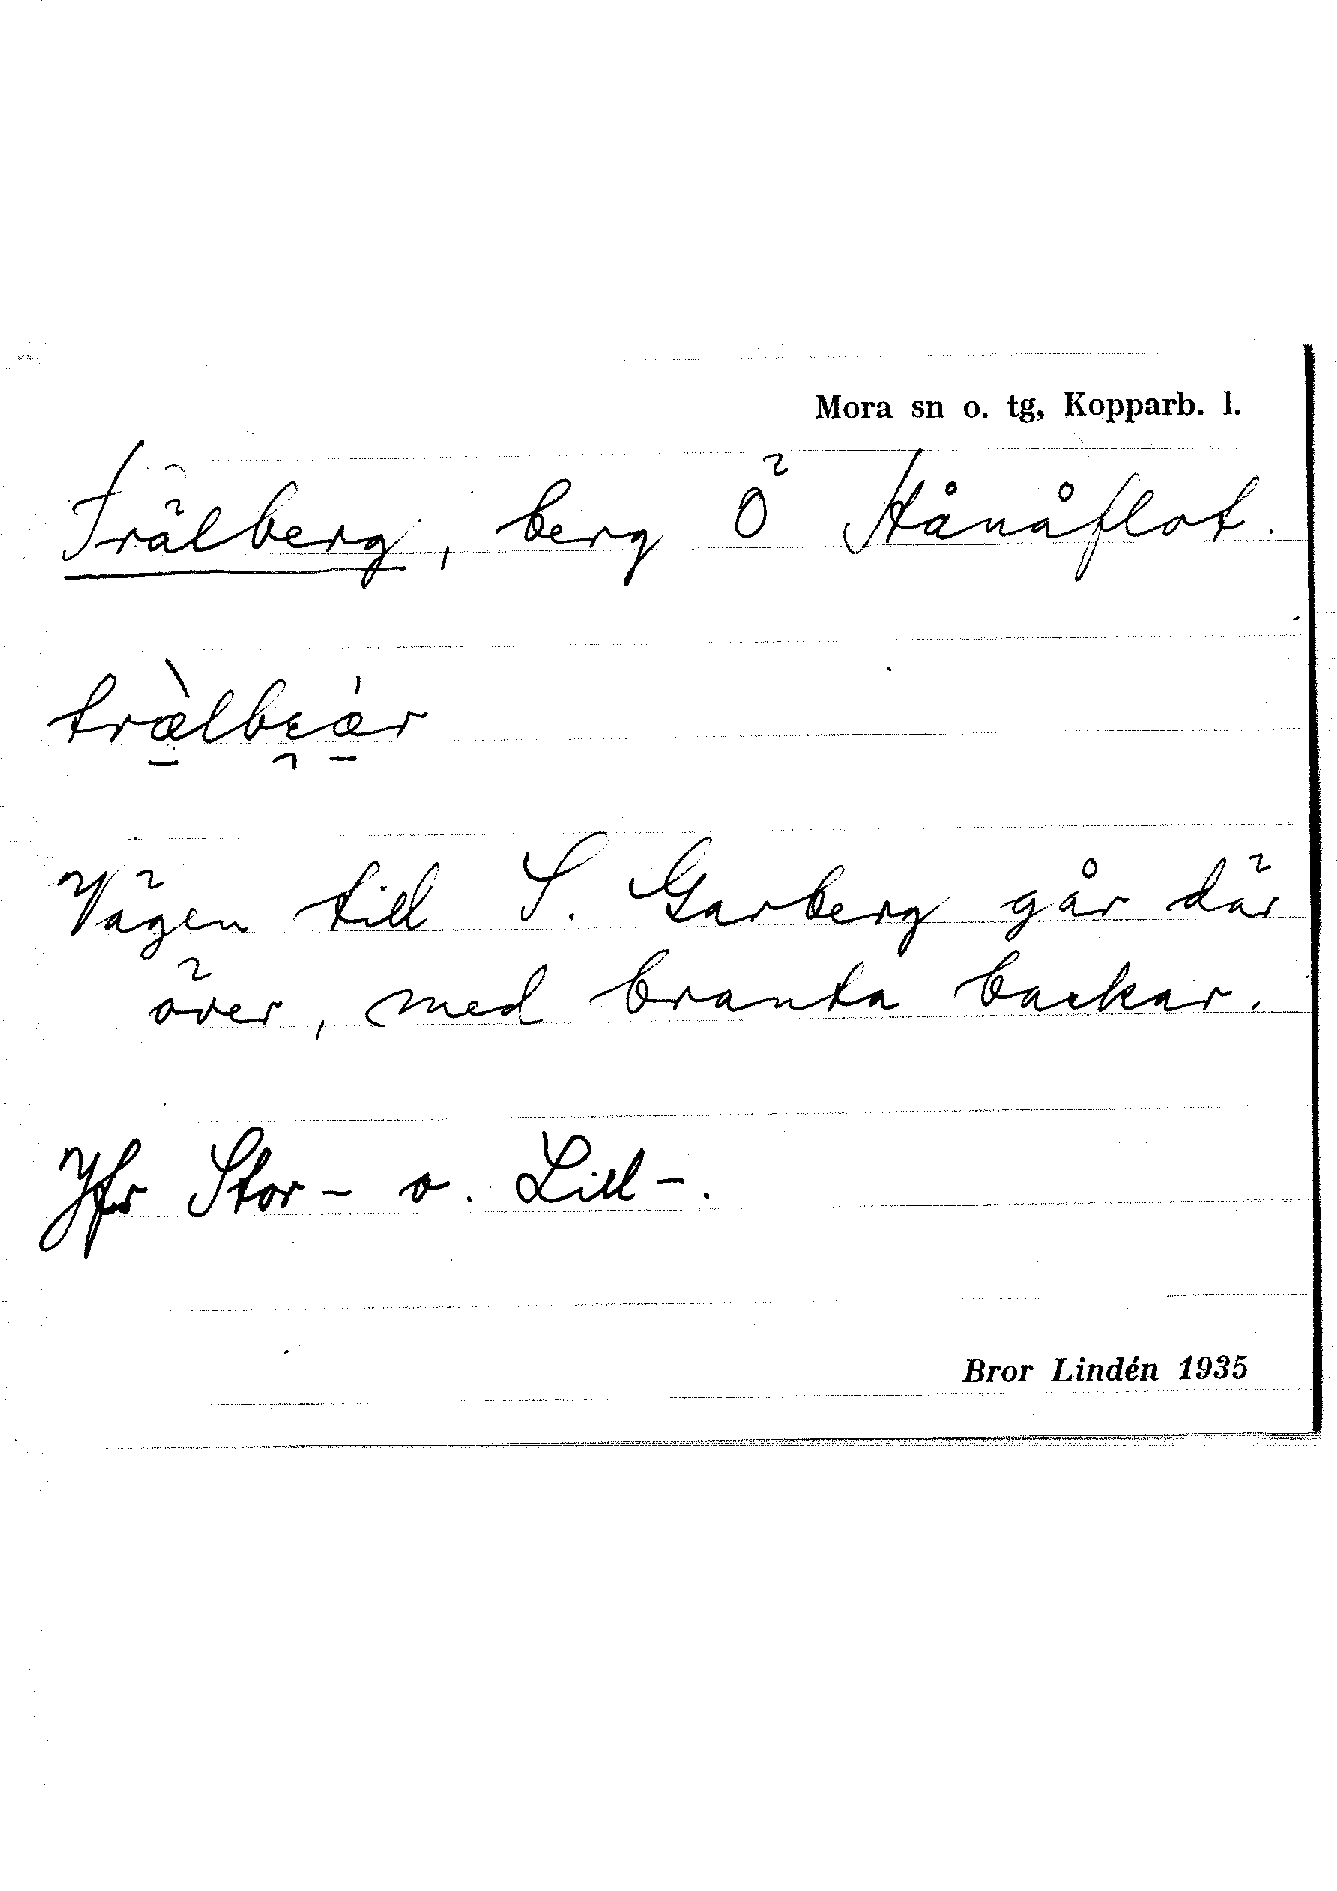 Mora sn o. tg, Kopparb. l.
Trälberg, berg Ö Stånåflot.
træ̀lbɛǽr
Vägen till S. Garberg går där
över, med branta backar.
Jfr Stor- o. Lill-.
Bror Lindén 1935